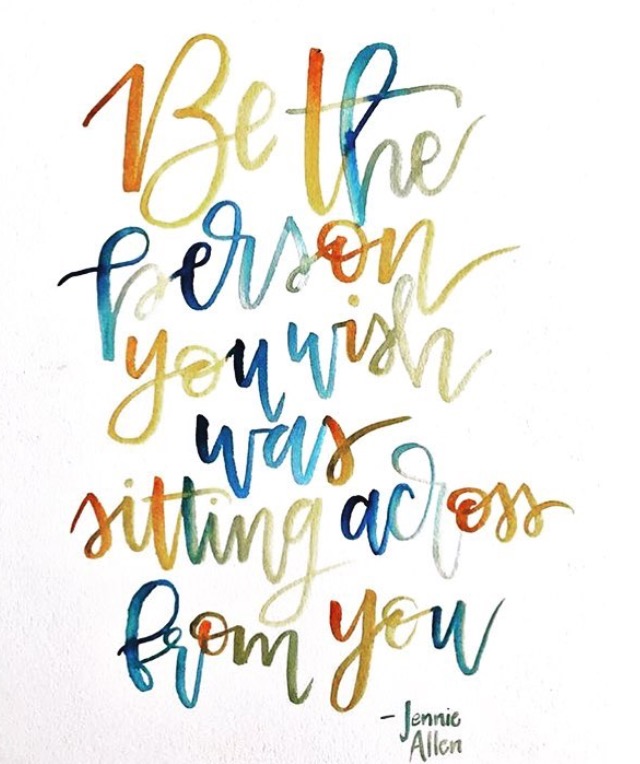 Be the
person
you wish
was
sitting across
from you
- Jennie
Allen